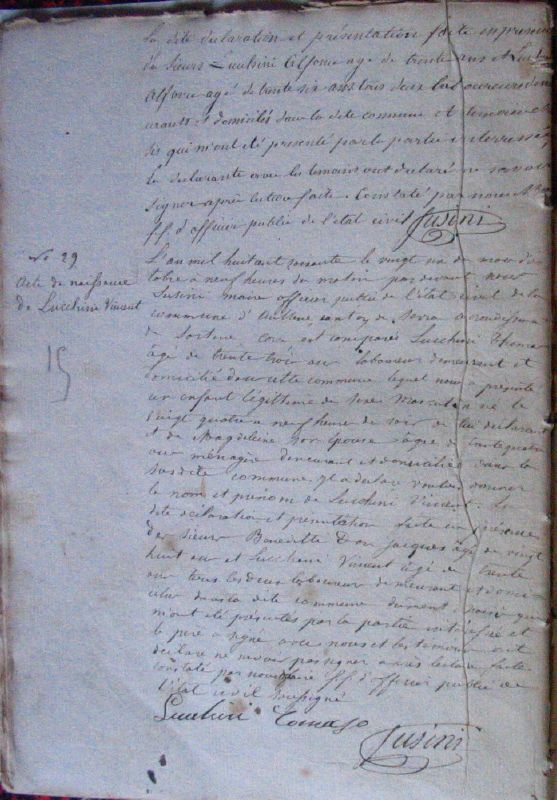 La dite declaration et présentation faite en presence
de sieurs Lucchini Alfonse agé de trente ans et
Alfonse agé de trente six ans tous deux laboureurs
et domiciliés dans la dite commune et temoins
qui m'ont été presenté par la partie interressée
la declarante avec les temoins ont declaré ne savoir
signer après lecture faite Constaté par nous
ff d'officier public de l'état civil Susini
No 29
Acte de naissance
de Lucchini Vincent
15
L'an mil huit cent soixante le vingt du mois d'oc
tobre à neuf heures du matin par devant nous
Susini maire officier public de l'état civil de la
commune d'Aullene canton de Serra arrondissement
de Sartene, Corse est comparu Lucchini Thomas
âgé de trente trois ans laboureur demeurant et
domicilié dans cette commune lequel nous a presenté
un enfant legitime de sexe masculin né le
vingt quatre à neuf heures du soir de lui declarant
et de Magdeleine son épouse agée de trente quatre
ans ménagère demeurant et domiciliée dans la
susdite commune, et a declaré vouloir donner
le nom et prenom de Lucchini Vincent. La
dite declaration et presentation faite en présence
des sieurs Benedetti Don Jacques agé de vingt
huit ans et Lucchini Vincent agé de trente
ans tous les deux laboureurs demeurant et domi
ciliés dans la dite commune qui
m'ont été presentés par la partie interessée et
le pere a signé avec nous et les temoins ont
declaré ne savoir pas signer après lecture faite
constaté par nous Maire ff d'officier public de
l'état civil soussigné
Lucchini Tomaso
Susini